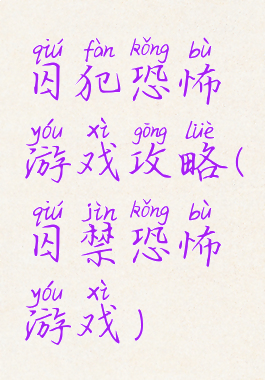 qiú fàn kǒng bù
囚犯恐怖
yóu xì gōng lüè
游戏攻略(
qiú jìn kǒng bù
囚禁恐怖
yóu xì
游戏)